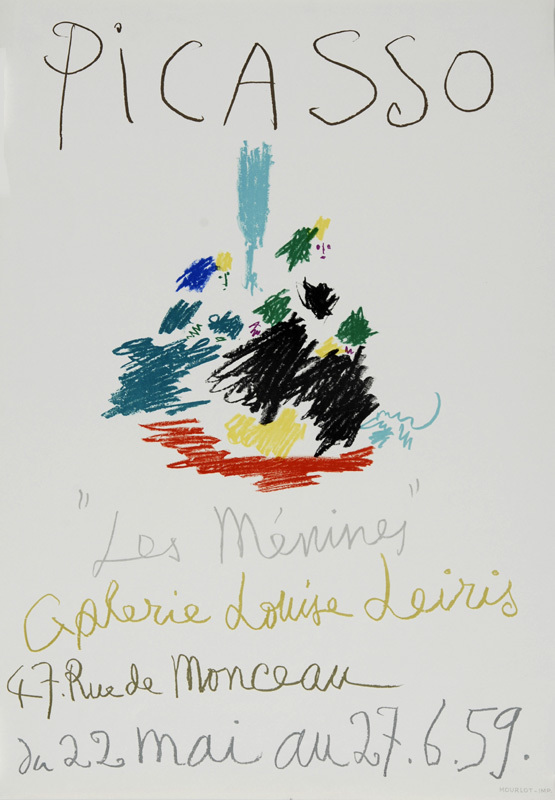 PiCASSO
"Les Ménines"
Galerie Louise Leiris
47. Rue de Monceau
du 22 mai au 27.6.59.
MOURLOT-IMP.